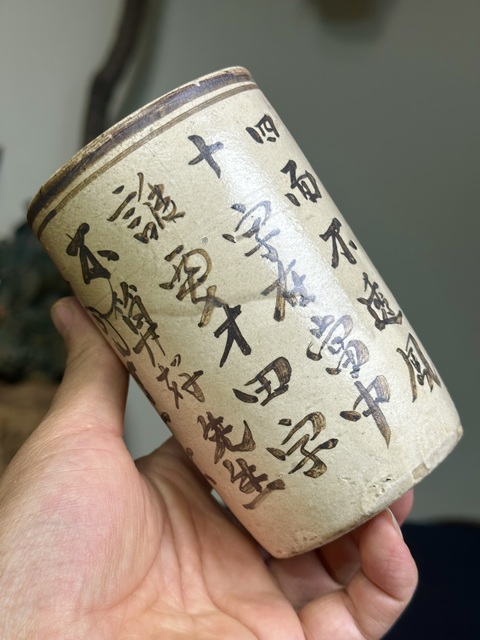 四面不透風
十字在當中
誰要才田字
不算好先生